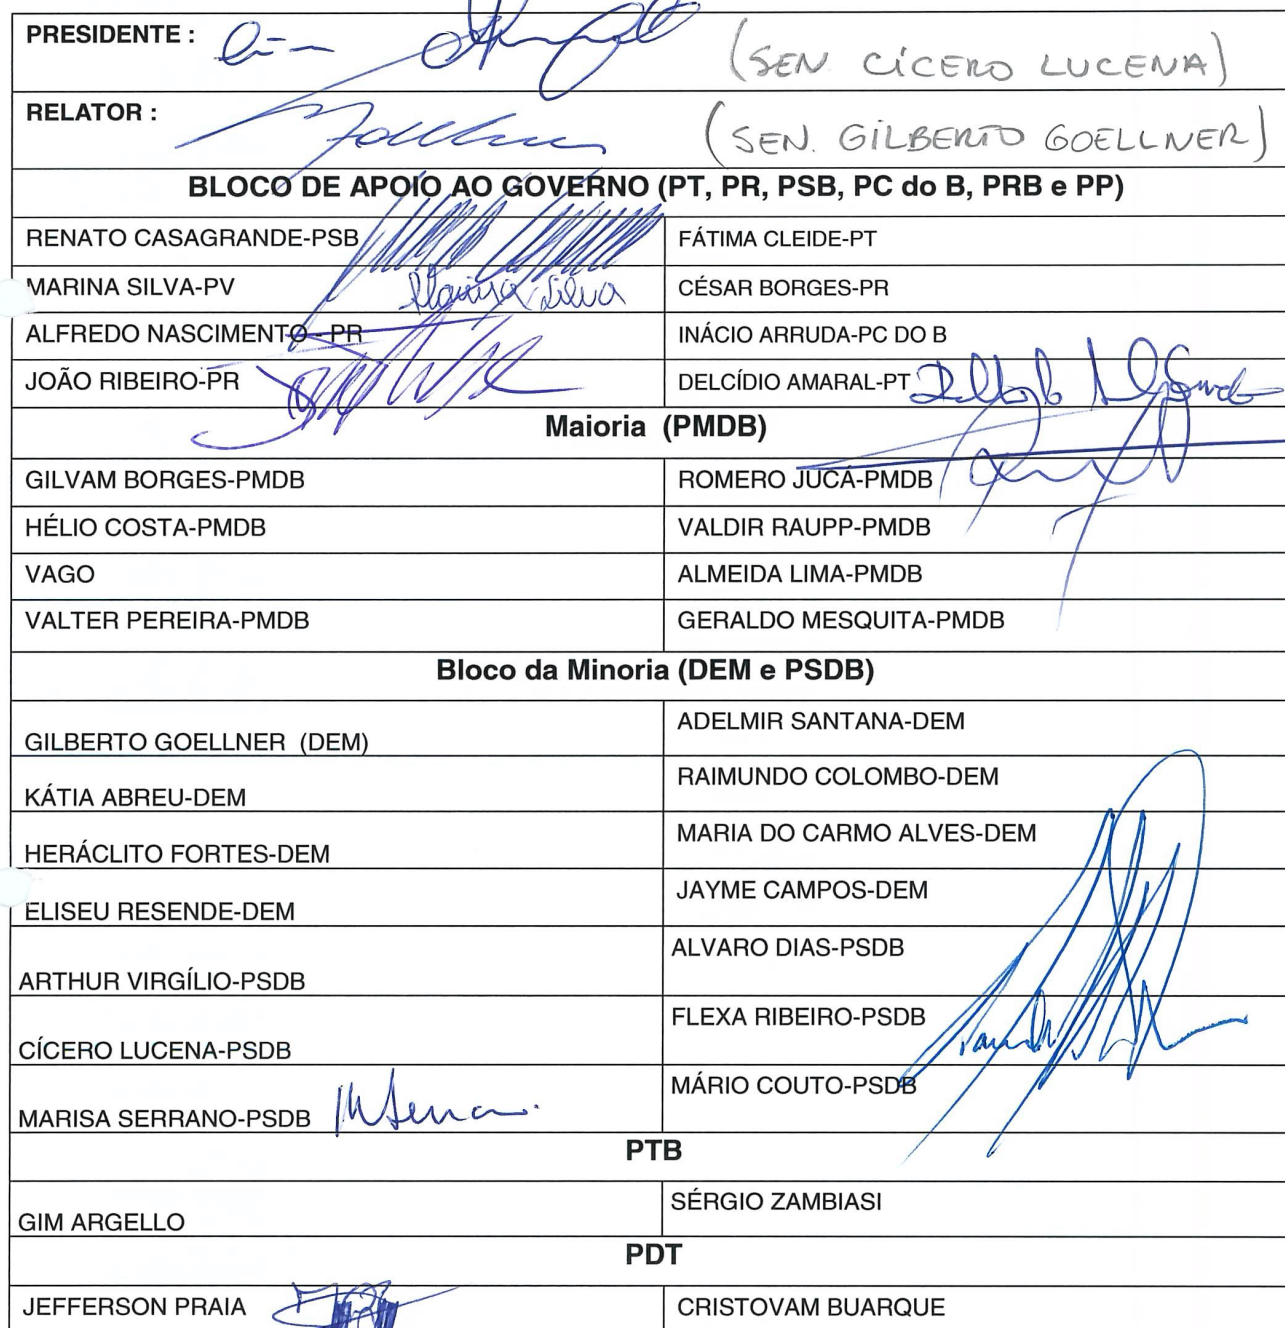 PRESIDENTE : (SEN CÍCERO LUCENA)
RELATOR : (SEN. GILBERTO GOELLNER)
BLOCO DE APOIO AO GOVERNO (PT, PR, PSB, PC do B, PRB e PP)
RENATO CASAGRANDE-PSB FÁTIMA CLEIDE-PT
MARINA SILVA-PV Marina Silva CÉSAR BORGES-PR
ALFREDO NASCIMENTO - PR INÁCIO ARRUDA-PC DO B
JOÃO RIBEIRO-PR DELCÍDIO AMARAL-PT
Maioria (PMDB)
GILVAM BORGES-PMDB ROMERO JUCÁ-PMDB
HÉLIO COSTA-PMDB VALDIR RAUPP-PMDB
VAGO ALMEIDA LIMA-PMDB
VALTER PEREIRA-PMDB GERALDO MESQUITA-PMDB
Bloco da Minoria (DEM e PSDB)
GILBERTO GOELLNER (DEM) ADELMIR SANTANA-DEM
KÁTIA ABREU-DEM RAIMUNDO COLOMBO-DEM
HERÁCLITO FORTES-DEM MARIA DO CARMO ALVES-DEM
ELISEU RESENDE-DEM JAYME CAMPOS-DEM
ARTHUR VIRGÍLIO-PSDB ALVARO DIAS-PSDB
CÍCERO LUCENA-PSDB FLEXA RIBEIRO-PSDB
MARISA SERRANO-PSDB MÁRIO COUTO-PSDB
PTB
GIM ARGELLO SÉRGIO ZAMBIASI
PDT
JEFFERSON PRAIA CRISTOVAM BUARQUE